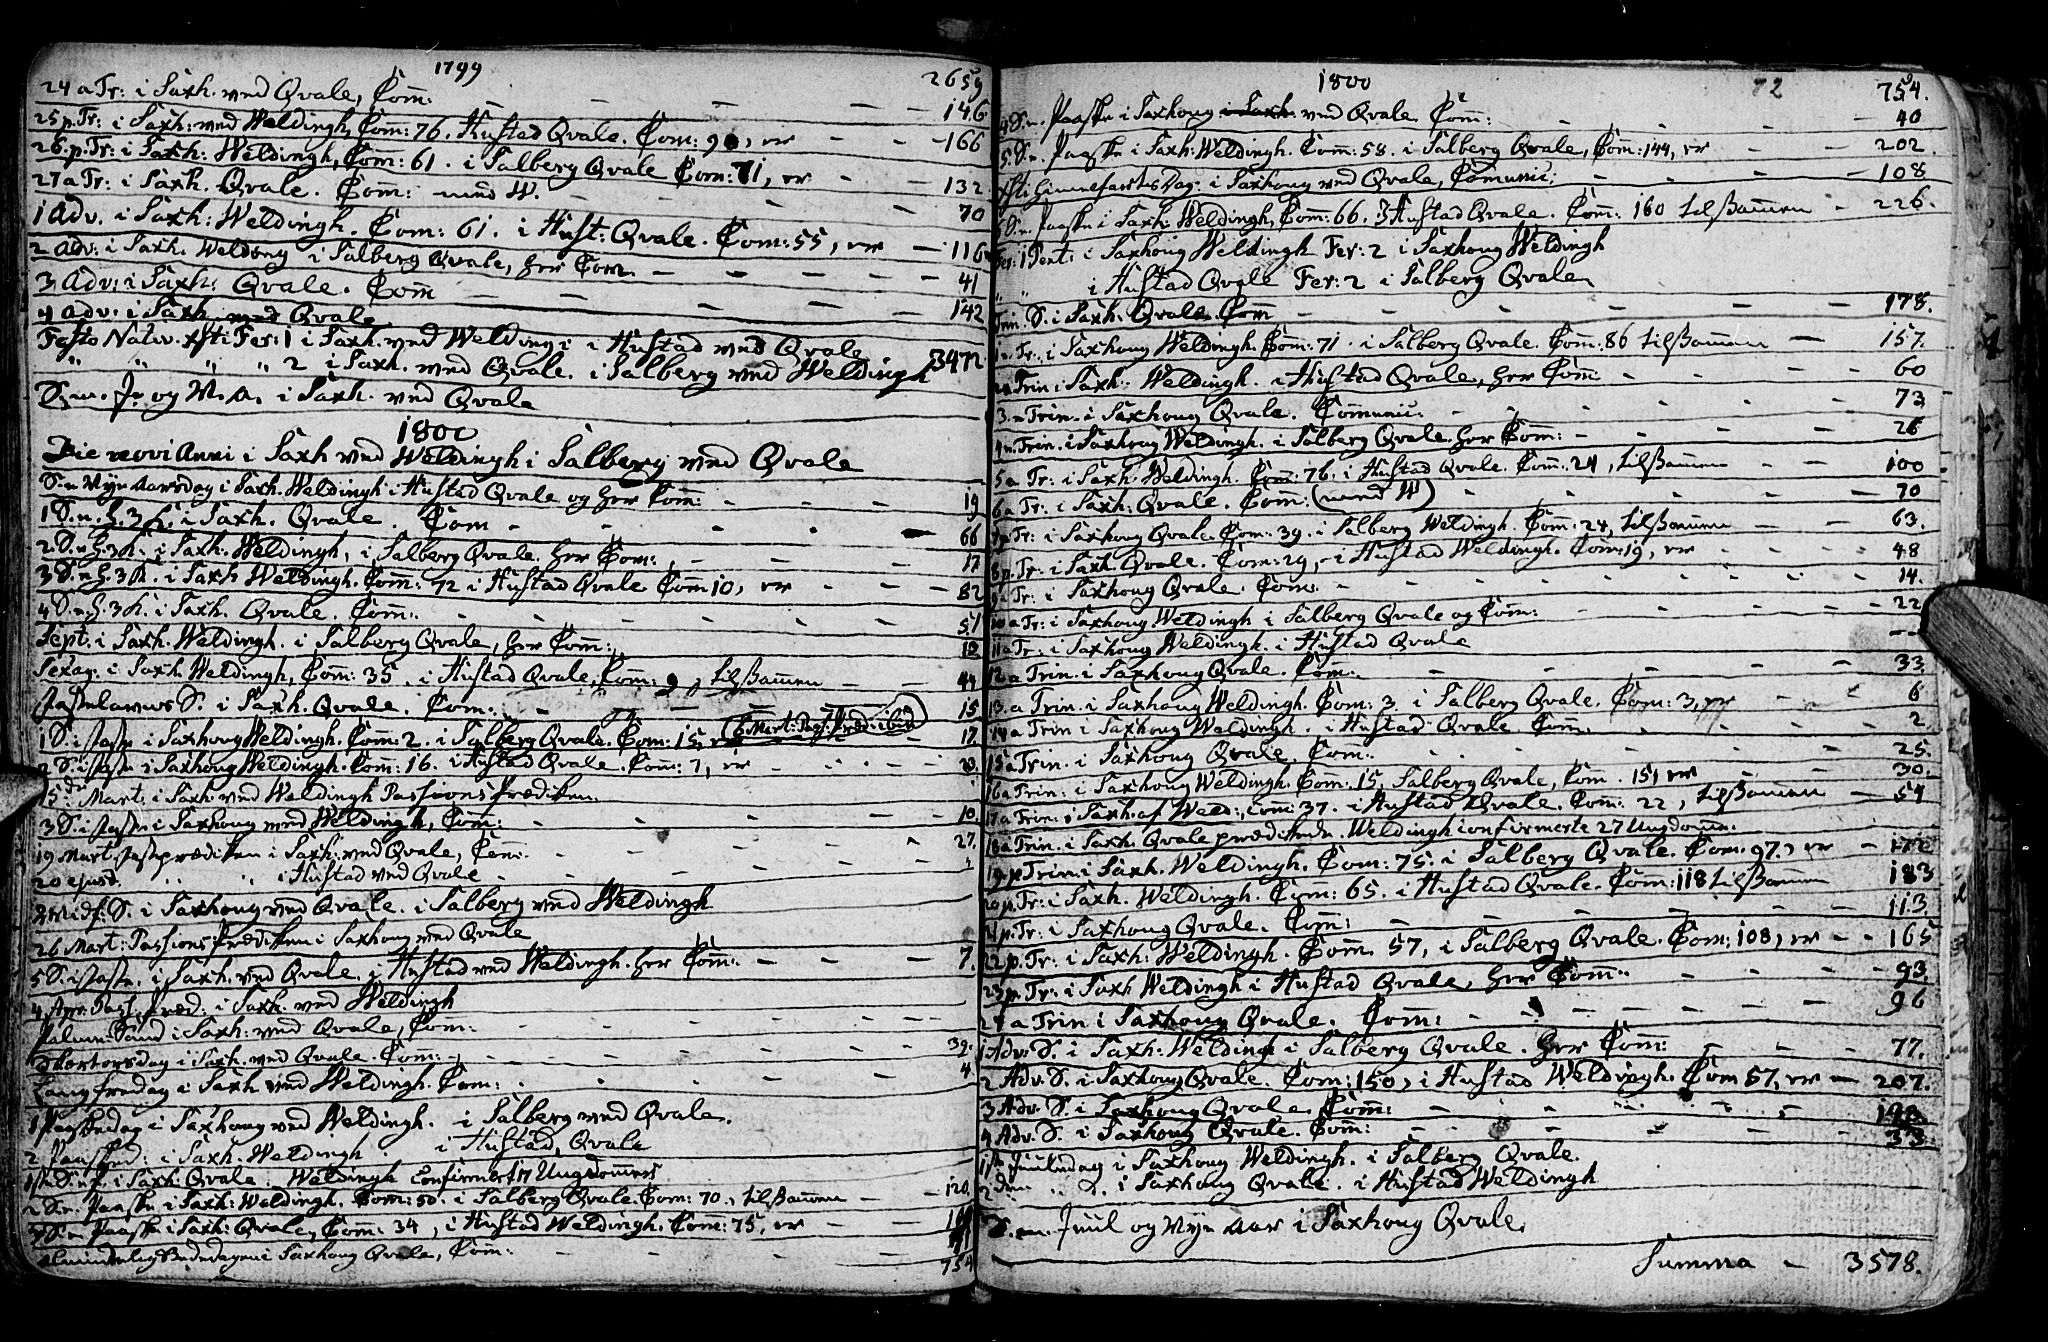 1799
2659
24 a Tr: i Saxh. ved Qvale, Com: — 146
25 p. Tr: i Saxh: ved Weldingh, Com: 76. Hustad Qvale. Com: 90, er — 166
26. p. Tr: i Saxh: Weldingh, Com: 61. i Salberg Qvale Com: 71, er — 132
27 a Tr: i Saxh. Qvale. Com: med W. — 70
1 Adv. i Saxh: Weldingh. Com: 61. i Hust: Qvale. Com: 55, er — 116
2 Adv: i Saxh. Weldingh i Salberg Qvale, her Com. — 41
3 Adv: i Saxh: Qvale. Com — 142
4 Adv: i Saxh. med Qvale
Festo Nativ. Xsti Fer: 1 i Saxh. ved Weldingh i Hustad ved Qvale
" " " " 2 i Saxh. ved Qvale. i Salberg ved Weldingh 3472
S. m. J. og N. A. i Saxh. ved Qvale
1800
Die novi Anni i Saxh ved Weldingh i Salberg ved Qvale
S. n Nyn Aarsdag i Saxh. Weldingh i Hustad Qvale og her Com: — 19
1 S. n. H. 3 K. i Saxh. Qvale. Com — 66
2. S. n H. 3 K: i Saxh. Weldingh, i Salberg Qvale. her Com: — 17
3 S. n H. 3 K. i Saxh Weldingh. Com: 72 i Hustad Qvale Com 10, er — 82
4 S. n H. 3 K. i Saxh. Qvale. Com: — 51
Sept. i Saxh. Weldingh. i Salberg Qvale, her Com: — 12
Sexag: i Saxh Weldingh, Com: 35. i Hustad Qvale, Com: 9, tilsammen — 44
Fastelavns S. i Saxh. Qvale. Com: — 15
1 S. i Faste i Saxhoug Weldingh. Com: 2. i Salberg Qvale. Com: 15, er (6 Mart: Pass. Præd: ibid) 17.
2 S. i Faste i Saxhoug Weldingh. Com: 16. i Hustad Qvale. Com: 7, er — 23.
15 de Mart: i Saxh. ved Weldingh Passions Prædiken.
3 S. i Faste i Saxhoug med Weldingh, Com: — 10
19 Mart. Fasteprædiken i Saxh. ved Qvale, Com: — 27.
20 ejusd. " " i Hustad ved Qvale
Midf: S. i Saxhoug ved Qvale. i Salberg ved Weldingh
26 Mart: Passions Prædiken i Saxhoug ved Qvale
5 S. i Faste. i Saxh. ved Qvale. i Hustad ved Weldingh. her Com: — 7.
4 Apr: Pass. Præd: i Saxh. ved Weldingh
Palme Sønd i Saxh: ved Qvale, Com: —
Skiertorsdag i Saxh. ved Qvale. Com: — 39.
Langfredag i Saxh ved Weldingh. Com: — 4
1 Paaskedag i Saxhoug ved Weldingh. i Salberg ved Qvale.
2 Paasked: i Saxh. Weldingh i Hustad, Qvale
1ste S. e. P. i Saxh Qvale. Weldingh Confirmert 17 Ungdommer
2 S. n Paaske i Saxh: Weldingh. Com: 50. i Salberg Qvale. Com: 70, tilsammen — 120.
3 S. n Paaske i Saxh: Qvale, Com: 34, i Hustad Weldingh. Com: 75, er —
Almindelig Bededagen i Saxhoug Qvale, Com: —
754
1800
72
754.
4 S. n. Paaske i Saxhoug i Saxh. ved Qvale. Com: — 40
5. S. n. Paaske i Saxh. Weldingh. Com: 58. i Salberg Qvale, Com: 144, er — 202.
Xsti Himmelfarts Dag: i Saxhoug ved Qvale, Communic: — 108
S. n. Paaske i Saxh: Weldingh, Com: 66. Hustad Qvale. Com: 160 tilsammen — 226.
Fer: 1 Pent: i Saxhoug Weldingh Fer: 2 i Saxhoug Weldingh
" " i Hustad Qvale Fer: 2 i Salberg Qvale
Trin. S. i Saxh: Qvale. Com — 178.
1 a Tr: i Saxhoug Weldingh. Com: 71. i Salberg Qvale. Com: 86 tilsammen — 157.
2 a Trin i Saxh: Weldingh. i Hustad Qvale, her Com — 60
3. a Trin. i Saxhoug Qvale. Communic: — 73
4 a Trin. i Saxhoug Weldingh. i Salberg Qvale. her Com: — 26
5 a Tr: i Saxh: Weldingh. Com: 76. i Hustad Qvale. Com: 24, tilsammen — 100
6 a Tr: i Saxh: Qvale. Com: (med W) — 70
7 p. Tr: i Saxhoug Qvale. Com: 39. i Salberg Weldingh. Com: 24, tilsammen — 63.
8 p. Tr: i Saxh. Qvale. Com: 29, i Hustad Weldingh. Com: 19, er — 48
9 a Tr: i Saxhoug Qvale. Com: — 14.
10 a Tr: i Saxhoug Weldingh i Salberg Qvale og Com: — 22
11 a Tr: i Saxhoug Weldingh. i Hustad Qvale —
12 a Trin. i Saxhoug Qvale. Com: — 33.
13. a Trin. i Saxhoug Weldingh. Com: 3. i Salberg Qvale. Com: 3, er — 6
14 a Trin i Saxhoug Weldingh. i Hustad Qvale Com: — 2
15 a Trin. i Saxhoug Qvale, Com: — 25.
16 a Trin. i Saxhoug Weldingh. Com: 15. Salberg Qvale, Com. 15, er — 30.
17 a Trin: i Saxh. af Weld:, Com: 37. i Hustad Qvale. Com: 22, tilsammen — 59
18 a Trin. i Saxh. Qvale prædikede. Weldingh confirmerte 27 Ungdomme.
19 p Trin i Saxh. Weldingh. Com: 75. i Salberg Qvale. Com: 97., er — 172
20 p. Tr: i Saxh. Weldingh. Com: 65. i Hustad Qvale. Com: 118 tilsammen 183
21 p. Tr: i Saxhoug Qvale. Com: — 113.
22 p. Tr: i Saxh: Weldingh. Com: 57, i Salberg Qvale. Com: 108, er — 165
23 p. Tr: i Saxh Weldingh i Hustad Qvale, her Com: — 93.
24 a Trin. i Saxhoug Qvale. Com: — 96
1 Adv: S. i Saxh: Weldingh i Salberg Qvale. her Com: — 77.
2 Adv. S. i Saxhoug Qvale. Com: 150, i Hustad Weldingh. Com 57, er — 207.
3 Adv. S. i Saxhoug Qvale. Com: —
4 Adv. S. i Saxhoug Qvale. Com: — 33
1ste Juuledag i Saxhoug Weldingh. i Salberg Qvale.
2 den " d. i Saxhoug Qvale. i Hustad Weldingh
S. m. Juul og Nyn Aar i Saxhoug Qvale.
Summa — 3578.